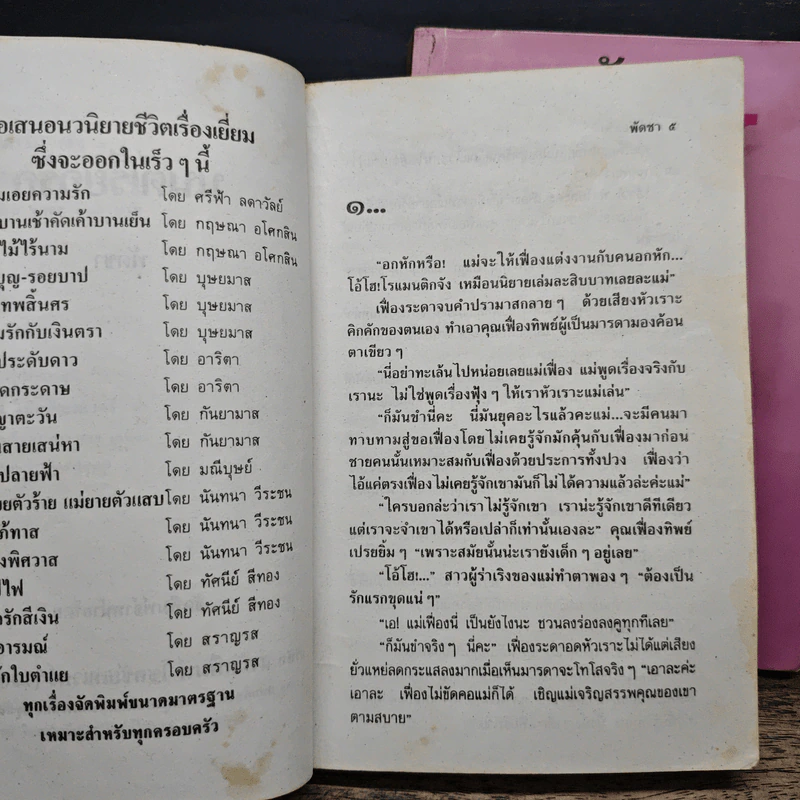 อเสนอนวนิยายชีวิตเรื่องเยี่ยม
ซึ่งจะออกในเร็ว ๆ นี้
มเอยความรัก โดย ศรีฟ้า ลดาวัลย์
บานเช้าคัดเค้าบานเย็น โดย กฤษณา อโศกสิน
ไม้ไร้นาม โดย กฤษณา อโศกสิน
บุญ-รอยบาป โดย บุษยมาส
ทพสิ้นศร โดย บุษยมาส
มรักกับเงินตรา โดย บุษยมาส
ประดับดาว โดย อาริตา
ดกระดาษ โดย อาริตา
ญาตะวัน โดย กันยามาส
สายเสน่หา โดย กันยามาส
ปลายฟ้า โดย มณีบุษย์
ยตัวร้าย แม่ยายตัวแสบ โดย นันทนา วีระชน
ภัทาส โดย นันทนา วีระชน
งพิศวาส โดย นันทนา วีระชน
ไฟ โดย ทัศนีย์ สีทอง
รักสีเงิน โดย ทัศนีย์ สีทอง
อารมณ์ โดย สราญรส
ักใบตำแย โดย สราญรส
ทุกเรื่องจัดพิมพ์ขนาดมาตรฐาน
เหมาะสำหรับทุกครอบครัว
พัดชา ๕
๑...
“อกหักหรือ! แม่จะให้เฟื่องแต่งงานกับคนอกหัก...
โอ้โฮ!โรแมนติกจัง เหมือนนิยายเล่มละสิบบาทเลยละแม่”
เฟื่องระดาจบคำปรามาสกลาย ๆ ด้วยเสียงหัวเราะ
คิกคักของตนเอง ทำเอาคุณเฟื่องทิพย์ผู้เป็นมารดามองค้อน
ตาเขียว ๆ
“นี่อย่าทะเล้นไปหน่อยเลยแม่เฟื่อง แม่พูดเรื่องจริงกับ
เรานะ ไม่ใช่พูดเรื่องฟุ้ง ๆ ให้เราหัวเราะแม่เล่น”
“ก็มันขำนี่คะ นี่มันยุคอะไรแล้วคะแม่...จะมีคนมา
ทาบทามสู่ขอเฟื่องโดยไม่เคยรู้จักมักคุ้นกับเฟื่องมาก่อน
ชายคนนั้นเหมาะสมกับเฟื่องด้วยประการทั้งปวง เฟื่องว่า
ไอ้แค่ตรงเฟื่องไม่เคยรู้จักเขามันก็ไม่ได้ความแล้วล่ะค่ะแม่”
“ใครบอกล่ะว่าเราไม่รู้จักเขา เราน่ะรู้จักเขาดีทีเดียว
แต่เราจะจำเขาได้หรือเปล่าก็เท่านั้นเองละ” คุณเฟื่องทิพย์
เปรยยิ้ม ๆ “เพราะสมัยนั้นน่ะเรายังเด็ก ๆ อยู่เลย”
“โอ้โฮ!...” สาวผู้ร่าเริงของแม่ทำตาพอง ๆ “ต้องเป็น
รักแรกขุดแน่ ๆ”
“เอ! แม่เฟื่องนี่ เป็นยังไงนะ ชวนลงร่องลงคูทุกทีเลย”
“ก็มันขำจริง ๆ นี่คะ” เฟื่องระดาอดหัวเราะไม่ได้แต่เสียง
ยั่วแหย่ลดกระแสลงมากเมื่อเห็นมารดาจะโทโสจริง ๆ “เอาละค่ะ
เอาละ เฟื่องไม่ขัดคอแม่ก็ได้ เชิญแม่เจริญสรรพคุณของเขา
ตามสบาย”